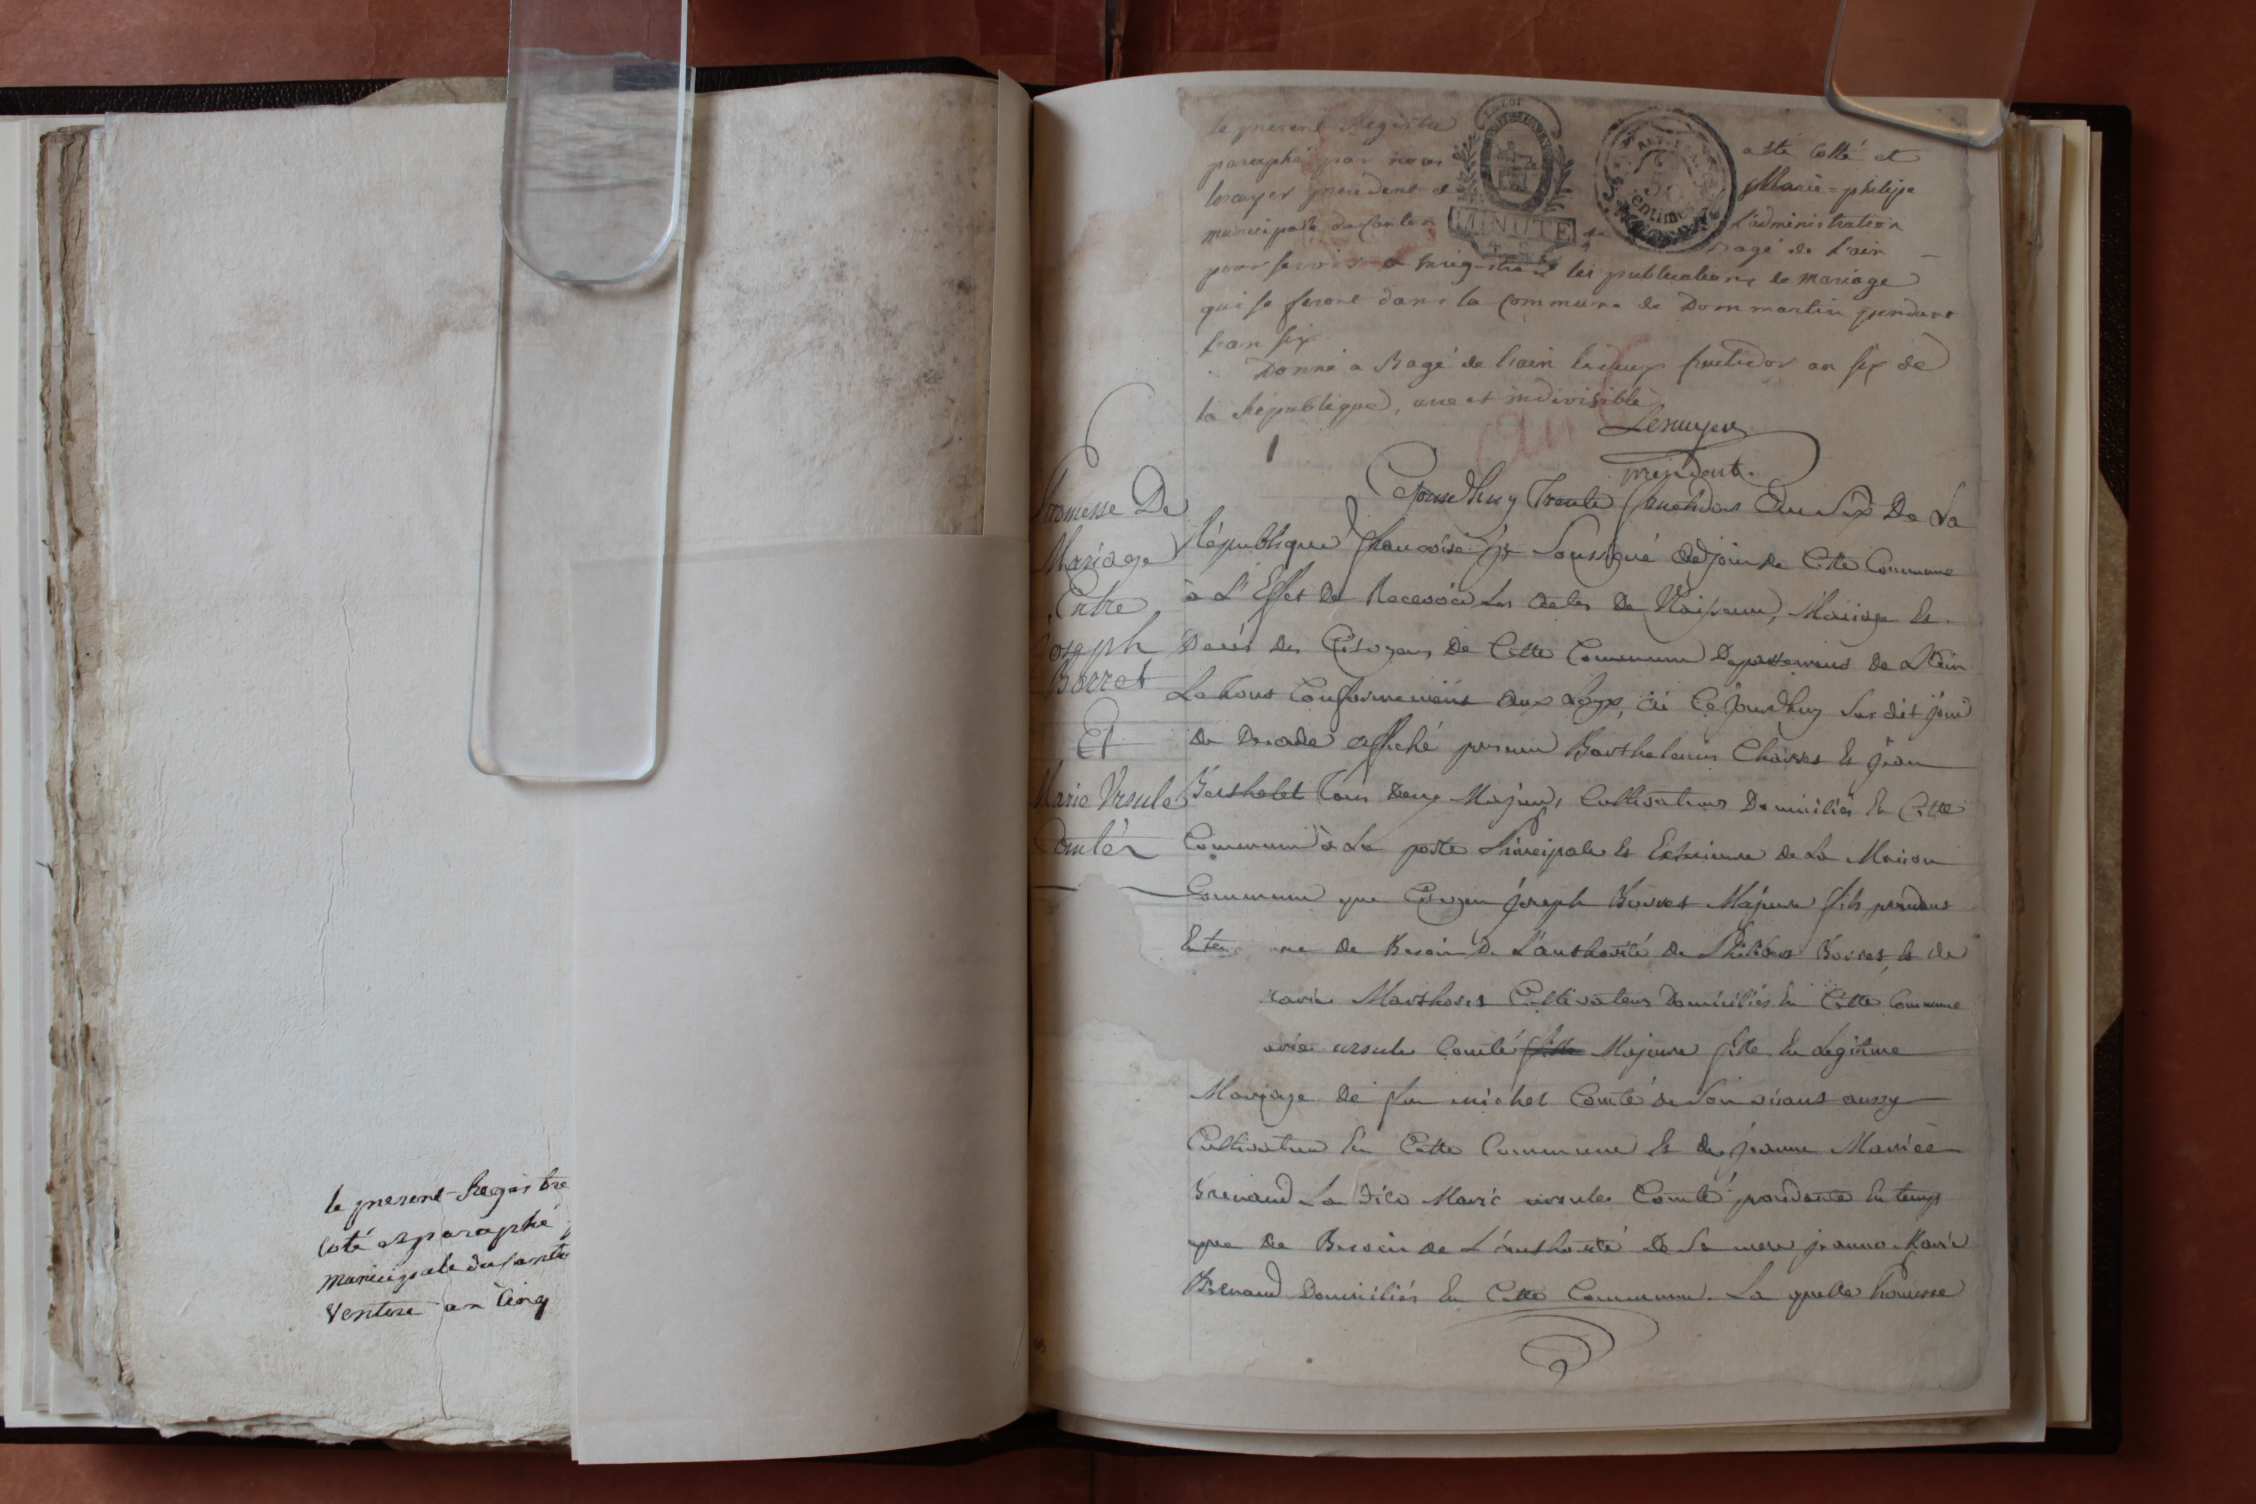 le present Regis tre
coté et paraphé
municipale du canto
Ventose an cinq
le present Registre a été Cotté et
paraphé par nous Marie=philipe
president de l'administration
municipale du Canton de Bagé de l'ain
MINUTE
pour servir a enregistrer les publications de mariage
qui se feront dans la Commune de Dommartin pendant
l'an six
Donné a Bagé de l'ain le deux fructidor an six de
la République, une et indivisible
président.
Promesse De
Mariage
Entre
Joseph
Borret
Et
Marie Ursule
Comté
Cejourdhuy Trente fructidor An Six De La
République francaise je Soussigné Adjoin de Cette Commune
à L'Effet de Recevoir Les Actes De Naissance, Mariage Et
Decés des Citoyens De Cette Commune Departement de L'Ain
Le tout Conformement aux Loyx, ai Cejourdhuy Sus dit jour
de Decade affiché Barthelemis Chairet Et jean
Bertholet Tous Deux Majeurs, Cultivateurs Domiciliés En Cette
Commune à La porte Principale Et Exterieure de La Maison
Commune que Citoyen joseph Borret Majeur fils pendant
En tem de Besoin De L'authorité de Philibert Borret, Et de
Cultivateurs Domiciliés En Cette Commune
ursule Comté Majeure fille En Legitime
Mariage De feu michel Comté de Son vivant aussy
Cultivateur En Cette Commune Et de jeanne Mariée
Brenaud La Dite Marie ursule Comté pendante En temps
que De Besoin de L'authorité De Sa mere jeanne Marie
Brenaud Domiciliés En Cette Commune. La quelle Promesse